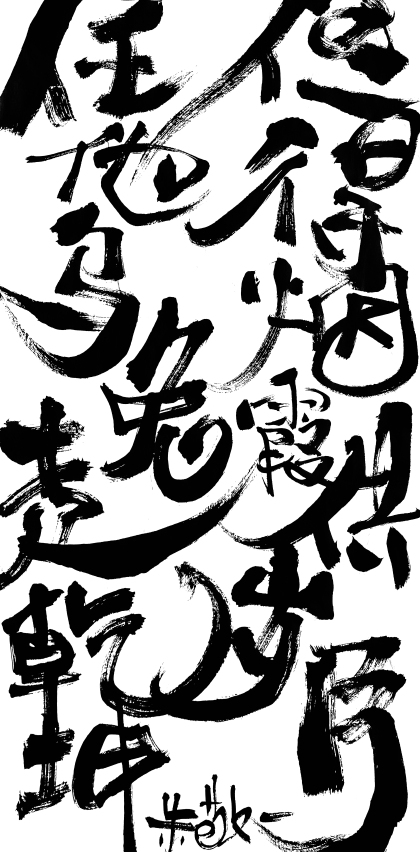 但得烟霞供岁月
任他乌兔走乾坤
朱敬一